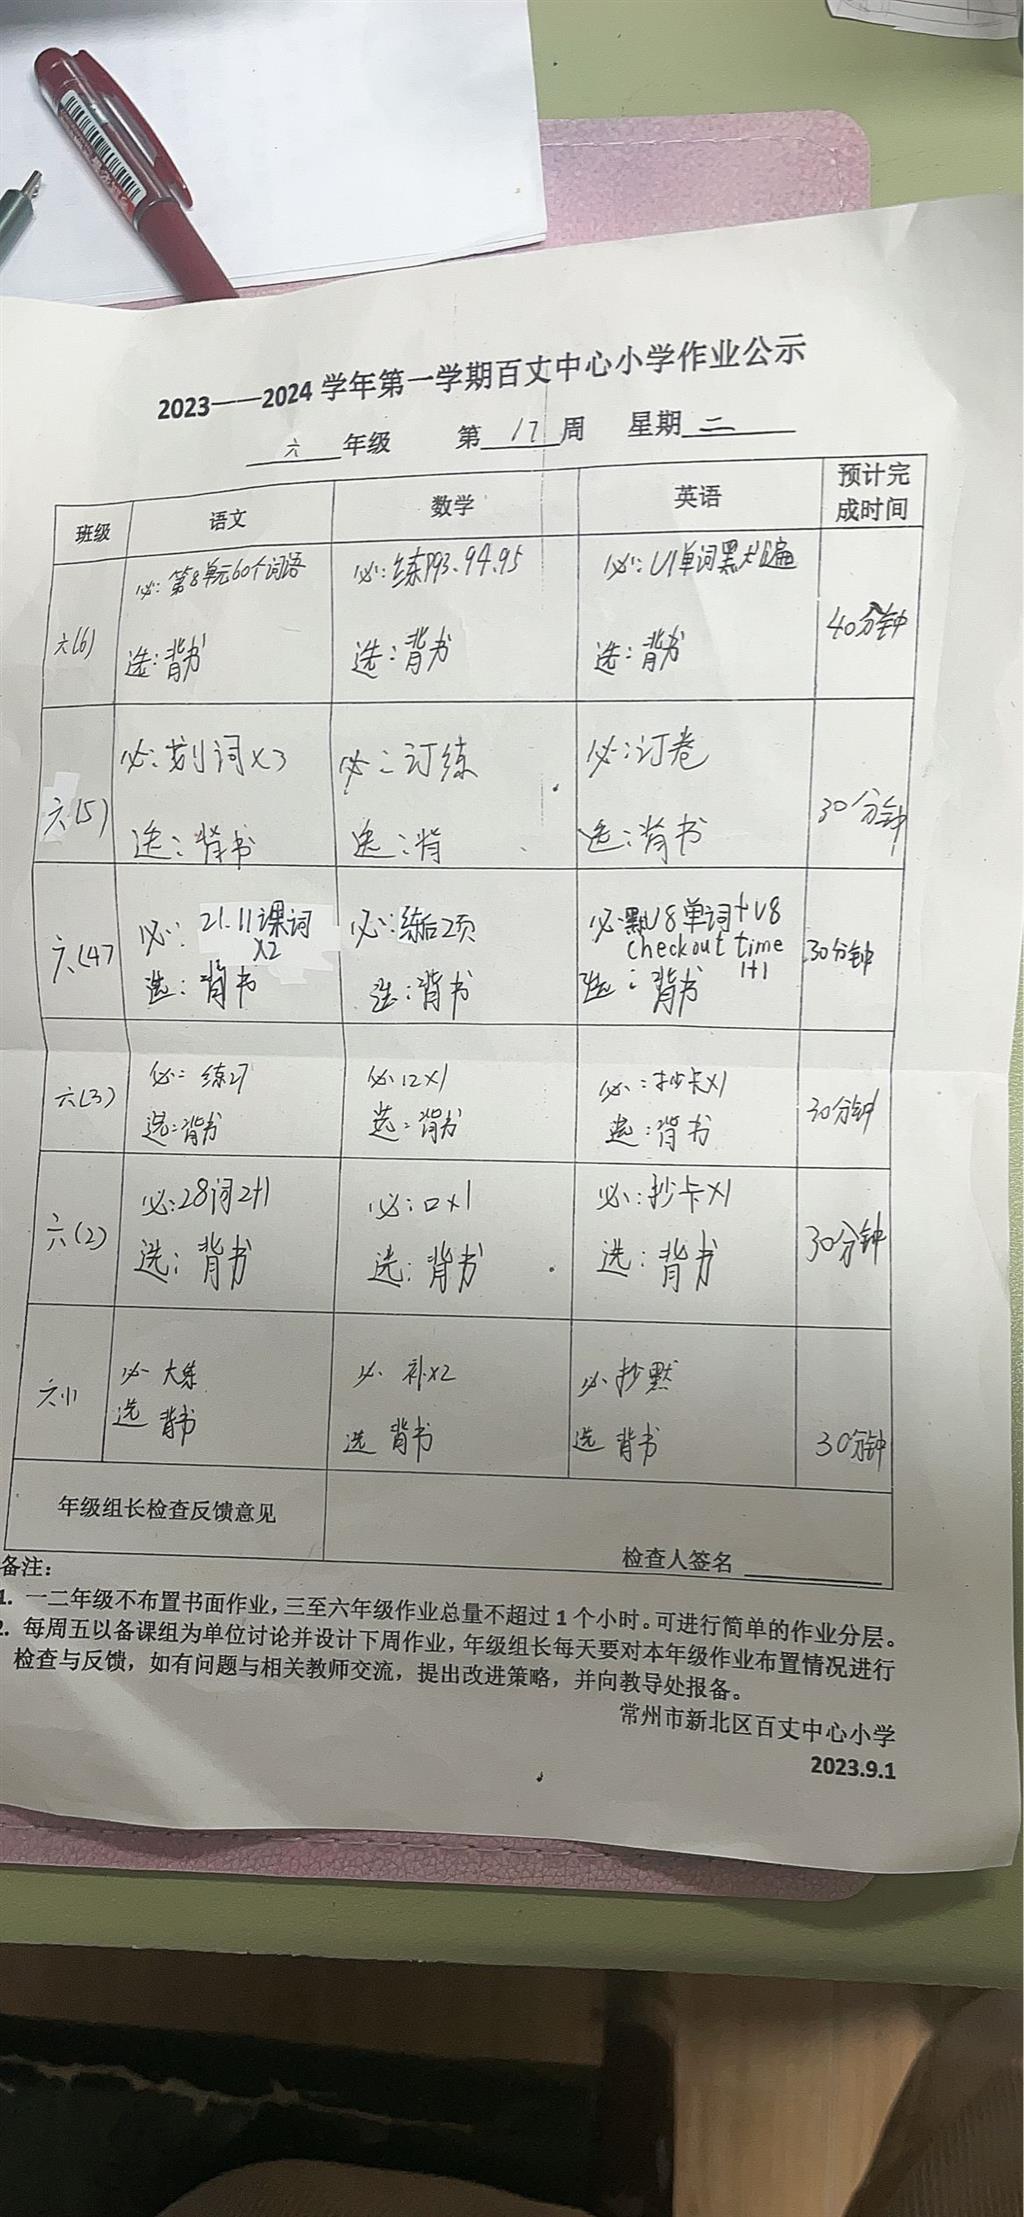 2023——2024 学年第一学期百丈中心小学作业公示
六 年级 第 17 周 星期 二
班级 语文 数学 英语 预计完成时间
六(6)
必: 第8单元60个词语
选: 背书
必: 练P93.94.95
选: 背书
必: U1单词默
选: 背书
40分钟
六(5)
必: 词×3
选: 背书
必: 订练
选: 背
必: 订卷
选: 背书
30分钟
六(4)
必: 21.11课词
×2
选: 背书
必: 练后2页
选: 背书
必: 默U8单词+U8
checkout time
1+1
选: 背书
30分钟
六(3)
必: 练27
选: 背书
必: 口×1
选: 背书
必: 抄卡×1
选: 背书
30分钟
六(2)
必: 28词2+1
选: 背书
必: 口×1
选: 背书
必: 抄卡×1
选: 背书
30分钟
六(1)
必 大练
选 背书
必 补×2
选 背书
必 抄默
选 背书
30分钟
年级组长检查反馈意见
检查人签名
备注:
1. 一二年级不布置书面作业,三至六年级作业总量不超过 1 个小时。可进行简单的作业分层。
2. 每周五以备课组为单位讨论并设计下周作业,年级组长每天要对本年级作业布置情况进行
检查与反馈,如有问题与相关教师交流,提出改进策略,并向教导处报备。
常州市新北区百丈中心小学
2023.9.1